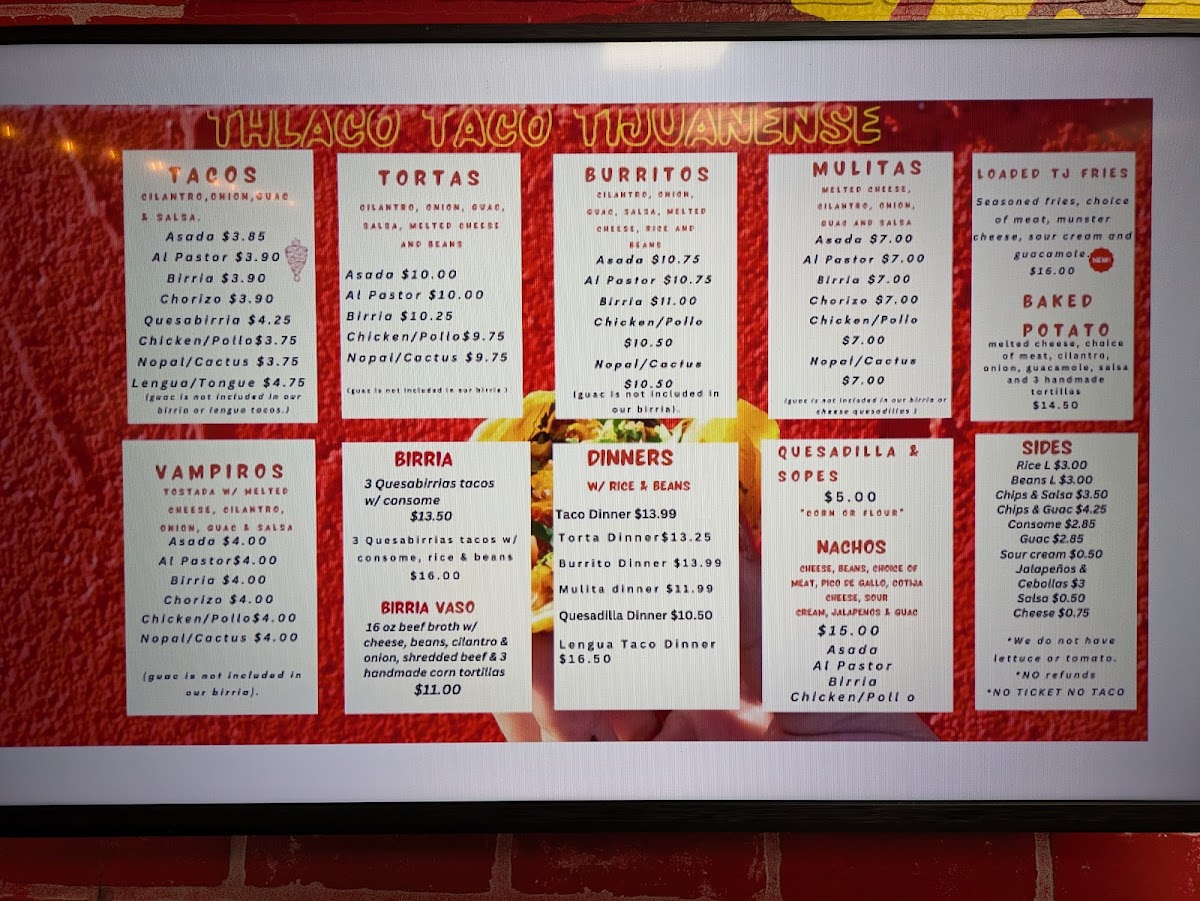 THLACO TACO TIJUANENSE
TACOS
CILANTRO,ONION,GUAC
& SALSA.
Asada $3.85
Al Pastor $3.90
Birria $3.90
Chorizo $3.90
Quesabirria $4.25
Chicken/Pollo$3.75
Nopal/Cactus $3.75
Lengua/Tongue $4.75
(guac is not included in our
birria or lengua tacos.)
TORTAS
CILANTRO, ONION, GUAC,
SALSA, MELTED CHEESE
AND BEANS
Asada $10.00
Al Pastor $10.00
Birria $10.25
Chicken/Pollo$9.75
Nopal/Cactus $9.75
(guac is not included in our birria )
BURRITOS
CILANTRO, ONION,
GUAC, SALSA, MELTED
CHEESE, RICE AND
BEANS
Asada $10.75
Al Pastor $10.75
Birria $11.00
Chicken/Pollo
$10.50
Nopal/Cactus
$10.50
(guac is not included in
our birria).
MULITAS
MELTED CHEESE,
CILANTRO, ONION,
GUAC AND SALSA
Asada $7.00
Al Pastor $7.00
Birria $7.00
Chorizo $7.00
Chicken/Pollo
$7.00
Nopal/Cactus
$7.00
(guac is not included in our birria or
cheese quesadillas )
LOADED TJ FRIES
Seasoned fries, choice
of meat, munster
cheese, sour cream and
guacamole.
NEW!
$16.00
BAKED
POTATO
melted cheese, choice
of meat, cilantro,
onion, guacamole, salsa
and 3 handmade
tortillas
$14.50
VAMPIROS
TOSTADA W/ MELTED
CHEESE, CILANTRO,
ONION, GUAC & SALSA
Asada $4.00
Al Pastor$4.00
Birria $4.00
Chorizo $4.00
Chicken/Pollo$4.00
Nopal/Cactus $4.00
(guac is not included in
our birria).
BIRRIA
3 Quesabirrias tacos
w/ consome
$13.50
3 Quesabirrias tacos w/
consome, rice & beans
$16.00
BIRRIA VASO
16 oz beef broth w/
cheese, beans, cilantro &
onion, shredded beef & 3
handmade corn tortillas
$11.00
DINNERS
W/ RICE & BEANS
Taco Dinner $13.99
Torta Dinner$13.25
Burrito Dinner $13.99
Mulita dinner $11.99
Quesadilla Dinner $10.50
Lengua Taco Dinner
$16.50
QUESADILLA &
SOPES
$5.00
"CORN OR FLOUR"
NACHOS
CHEESE, BEANS, CHOICE OF
MEAT, PICO DE GALLO, COTIJA
CHEESE, SOUR
CREAM, JALAPENOS & GUAC
$15.00
Asada
Al Pastor
Birria
Chicken/Poll o
SIDES
Rice L $3.00
Beans L $3.00
Chips & Salsa $3.50
Chips & Guac $4.25
Consome $2.85
Guac $2.85
Sour cream $0.50
Jalapeños &
Cebollas $3
Salsa $0.50
Cheese $0.75
*We do not have
lettuce or tomato.
*NO refunds
*NO TICKET NO TACO